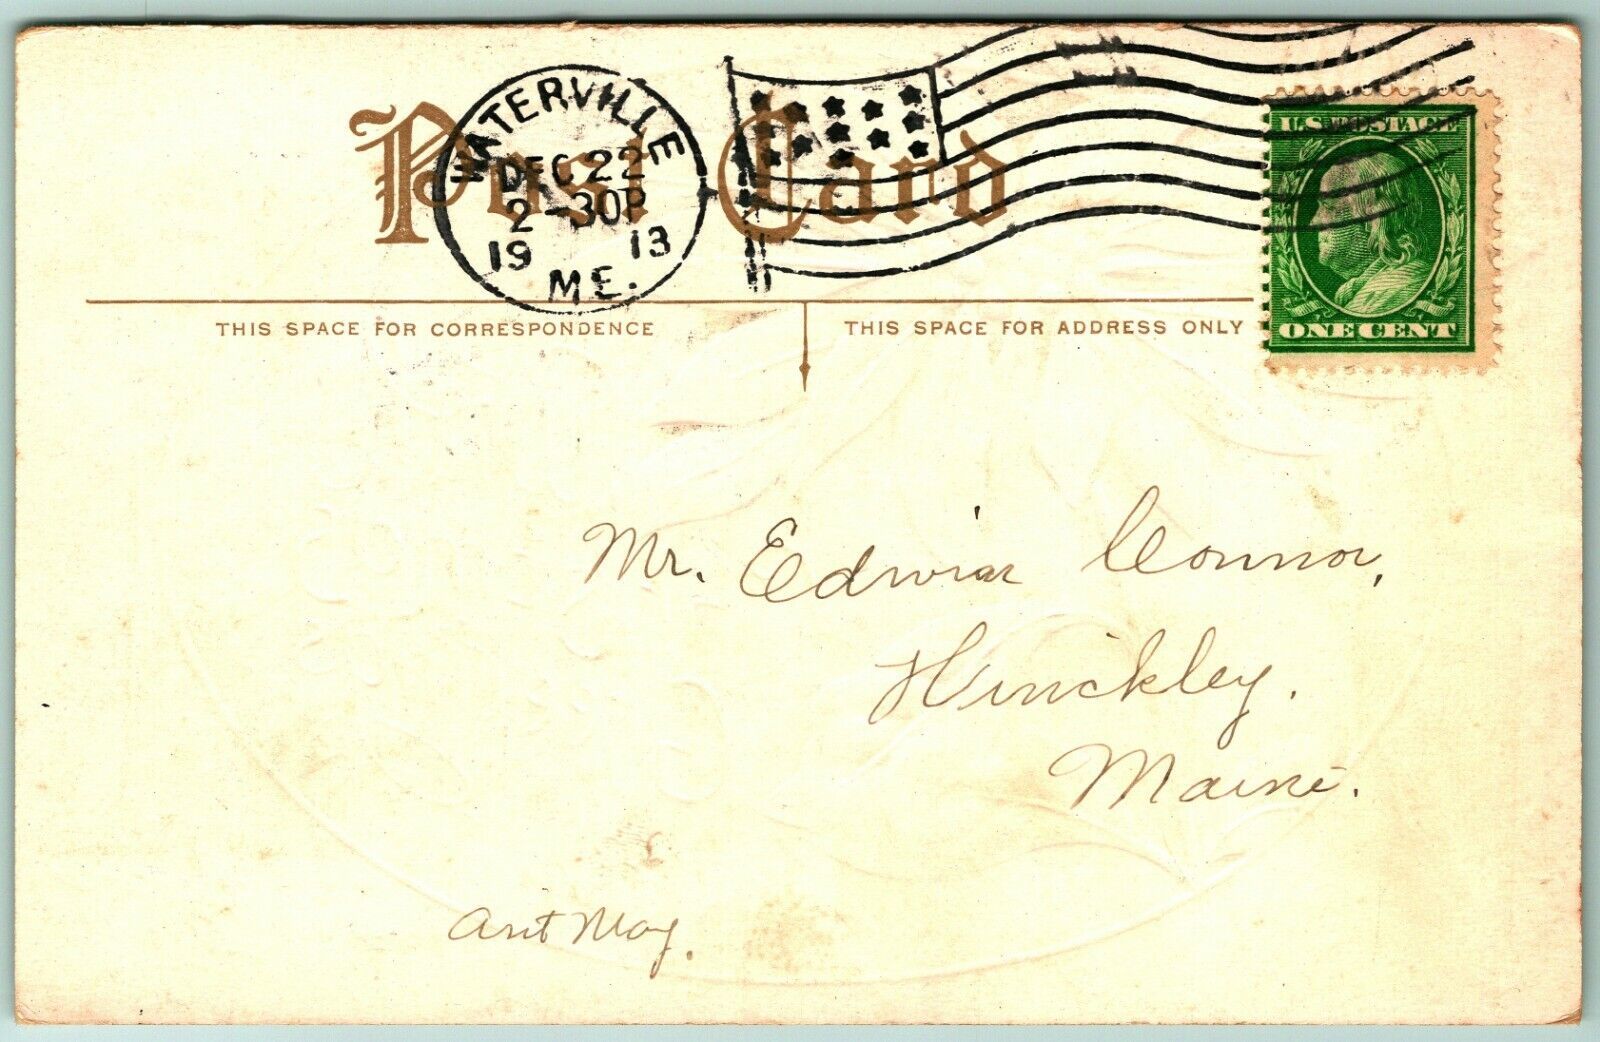 Post Card
WATERVILLE
DEC 22
2-30P
19 13
ME.
U.S. POSTAGE
ONE CENT
THIS SPACE FOR CORRESPONDENCE
THIS SPACE FOR ADDRESS ONLY
Mr. Edwin Connor,
Hinckley.
Maine.
Ant May.